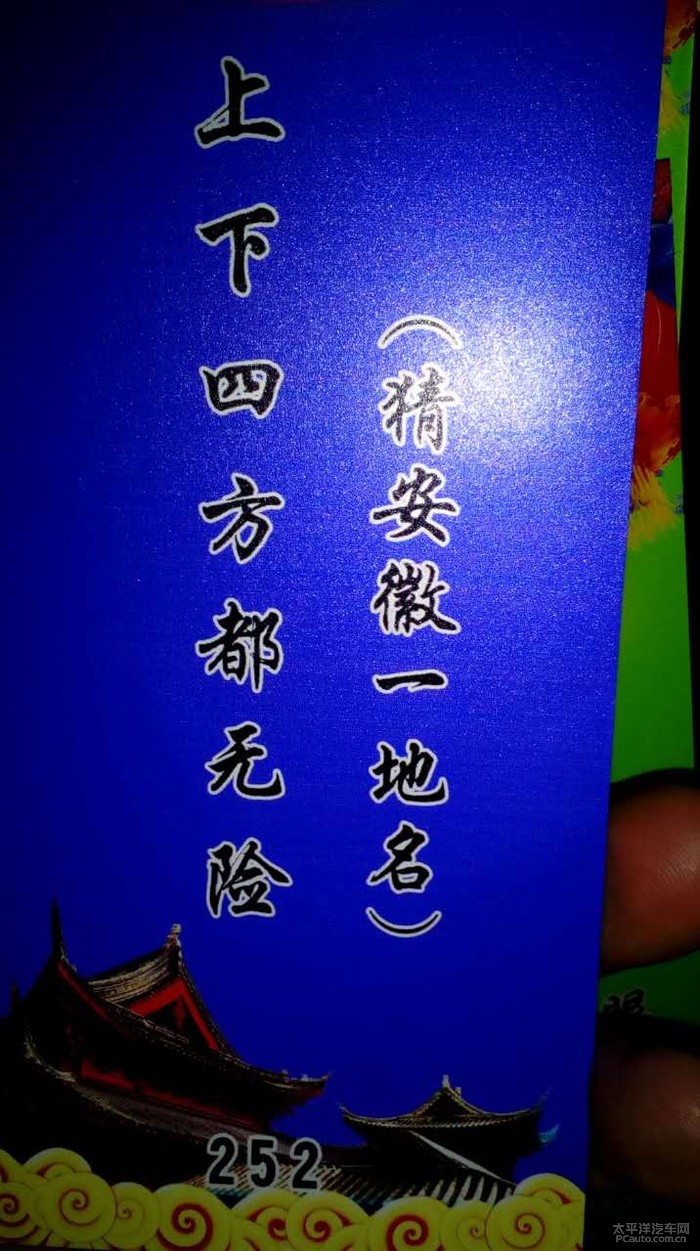 上下四方都无险
(猜安徽一地名)
252
太平洋汽车网
PCauto.com.cn